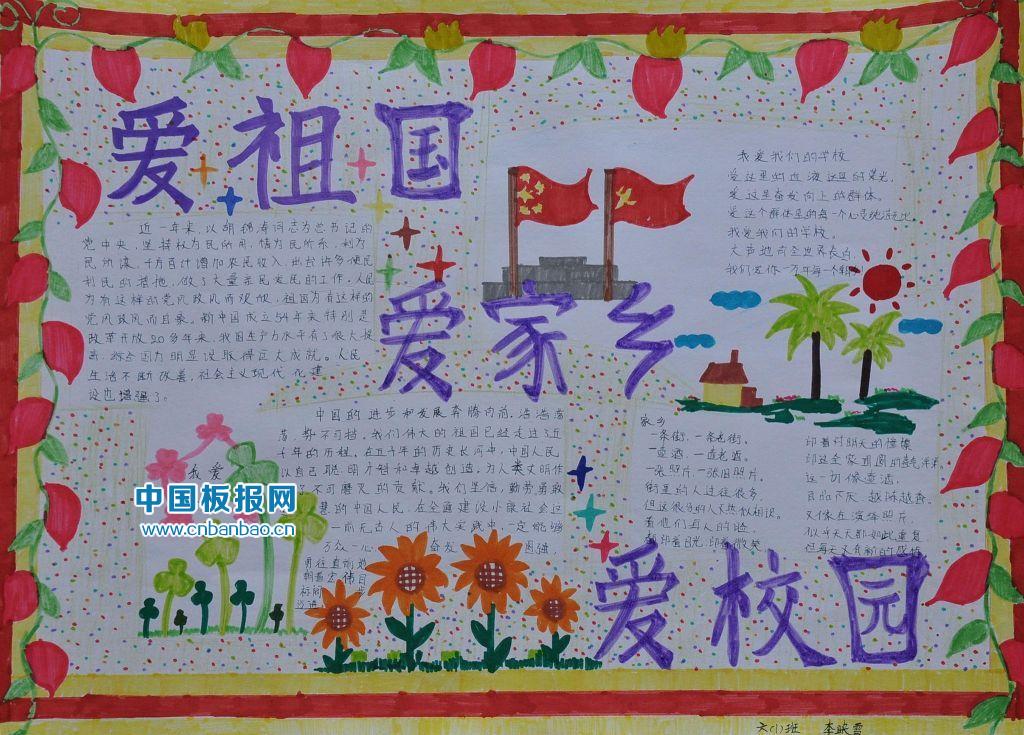 爱祖国
近一年来,以胡锦涛同志为总书记的
党中央,坚持权为民所用,情为民所系,利为
民所谋,千方百计增加农民收入,出台许多便民
利民的措施,做了大量亲民爱民的工作,人民
为有这样的党风政风而观欣,祖国为有这样的
党风政风而自豪。新中国成立54年来特别是
改革开放20多年来,我国生产力水平有了很大提
高,综合国力明显设取得巨大成就。人民
生活不断改善,社会主义现代化建
设也增强了。
爱家乡
中国的进步和发展奔腾向前,浩浩荡
荡,势不可挡。我们伟大的祖国已经走过了近
千年的历程。在五千年的历史长河中,中国人民
以自己聪明才智和卓越创造,为人类文明作
了不可磨灭的贡献。我们坚信,勤劳勇敢
慧的中国人民,在全面建设小康社会这
一前无古人的伟大实践中,一定能够
万众一心 奋发 图强,
勇往直前
朝着宏伟目
标
我爱
我爱我们的学校
爱这里
爱这里奋发向上的群体。
爱这个群体里的每一个心灵
我爱我们的学校。
大声地向全世界表白
我们
家乡
一条街,一条老街。
一壶酒,一壶老酒。
一张照片,一张旧照片。
街里的人过往很多,
但这很多的人
看他们每人的脸,
都印着日光,印着微笑。
印着对明天的憧憬
印这全家
这一切像壶酒,
日日
又像在演绎照片
似乎天天都如此重复
但每天又有新的
爱校园
中国板报网
www.cnbanbao.cn
六(1)班 李映雪